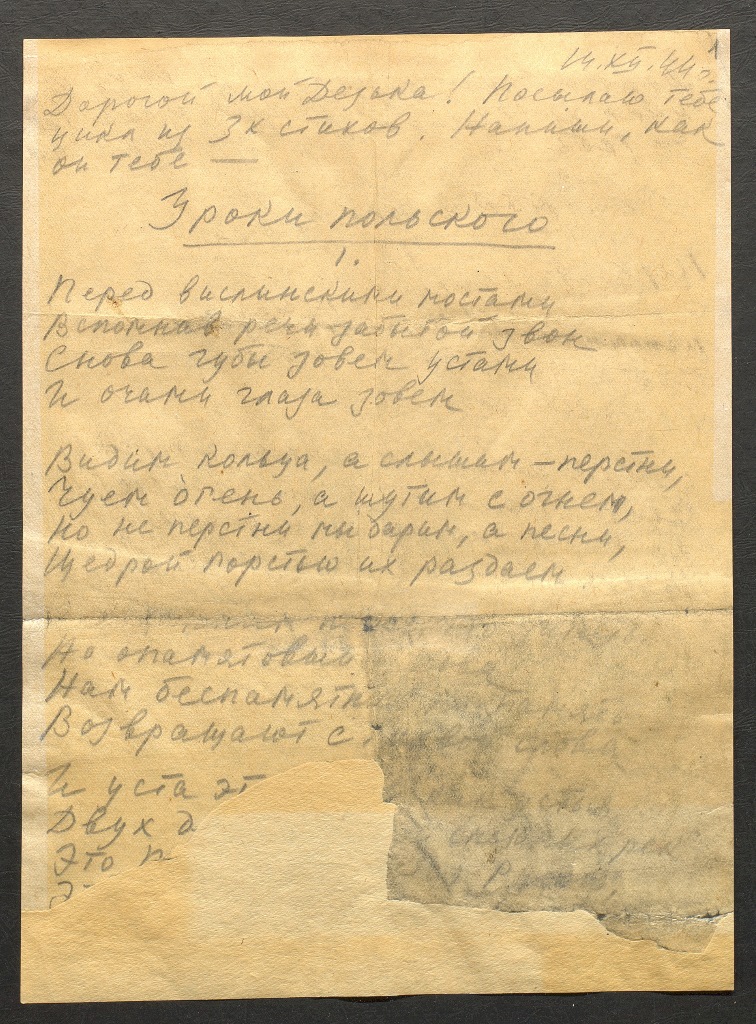 1
14.XII.44 г.
Дорогой мой Дезька! Посылаю тебе
цикл из 3х стихов. Напиши, как
он тебе —
Уроки польского
1.
Перед вислинскими мостами
Вспомнив речи забытой звон
Снова губы зовем устами
И очами глаза зовем
Видим кольца, а слышим – перстни,
Чуем огень, а шутим с огнем,
Но не перстни мы дарим, а песни,
Щедрой горстью их раздаем
Но опамятовый
Нам беспамятны память
Возвращают слова
И уста эт устья
Двух д рек
Это п Русью,